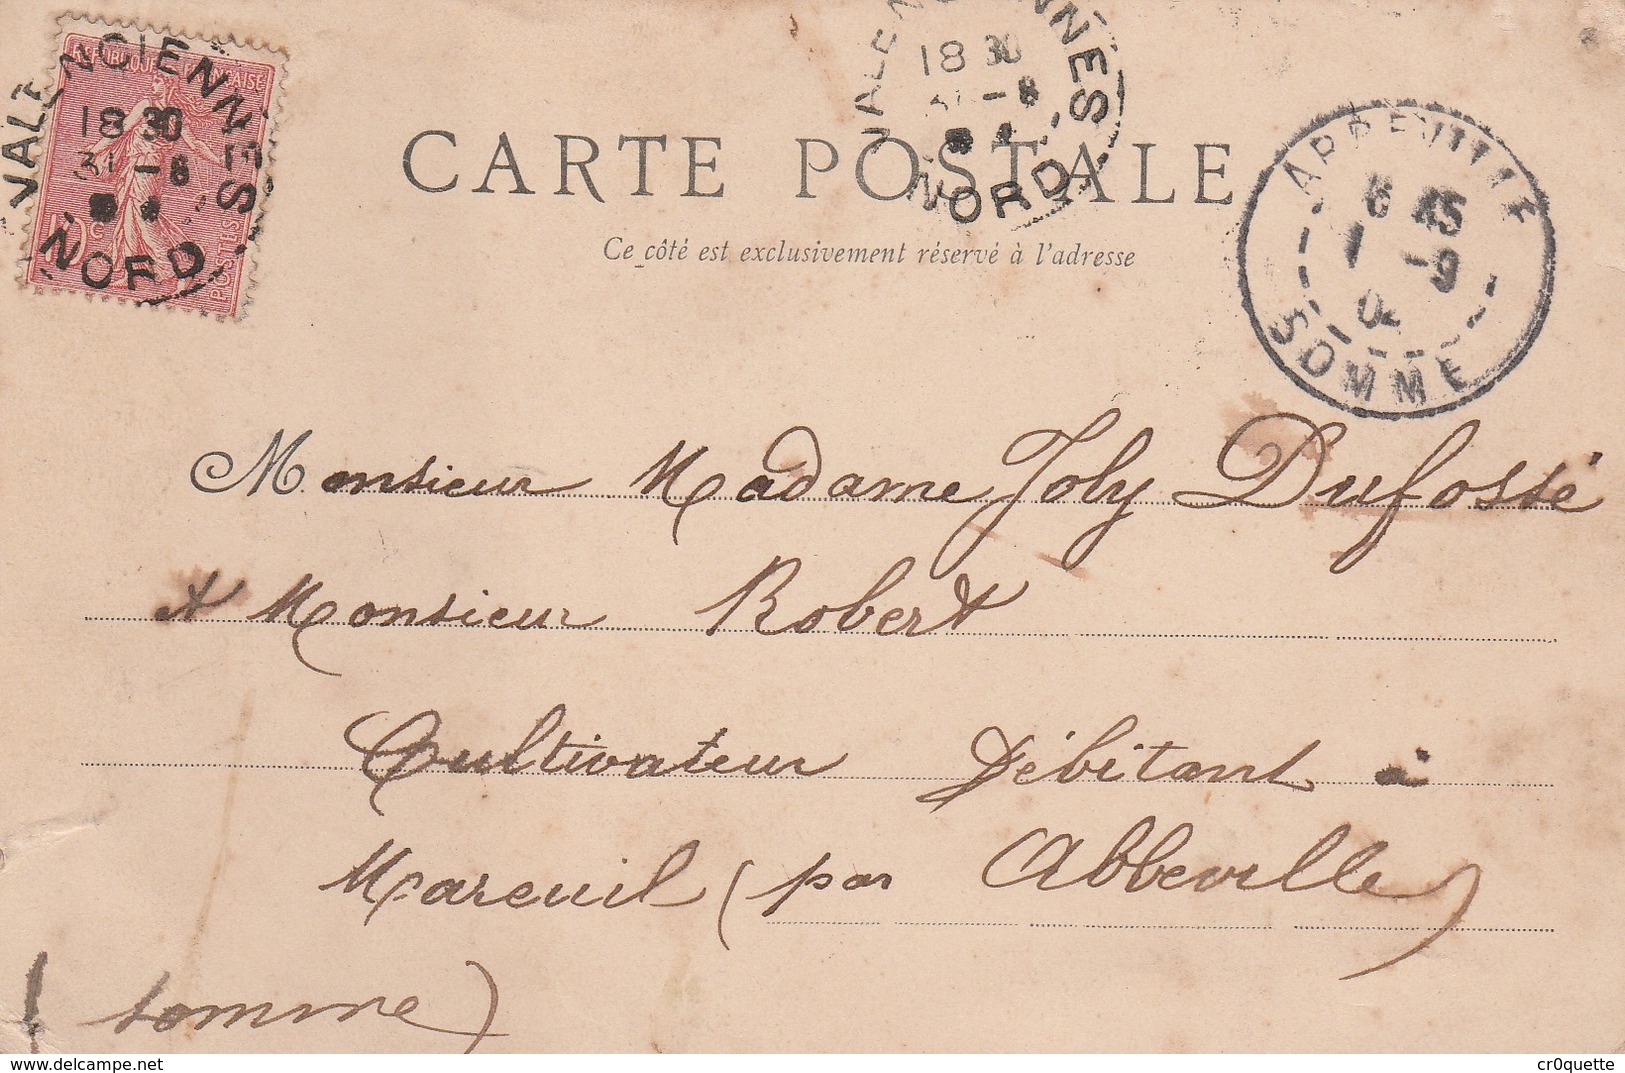 RÉPUBLIQUE FRANÇAISE
10c
POSTES
VALENCIENNES
18 30
31 -8
NORD
VALENCIENNES
18 30
31 -8
NORD
CARTE POSTALE
Ce côté est exclusivement réservé à l'adresse
ABBEVILLE
15
1 -9
SOMME
Monsieur Madame Joly Dufossé
et Monsieur Robert
Cultivateur Débitant à
Mareuil (par Abbeville)
(Somme)
delcampe.net
cr0quette